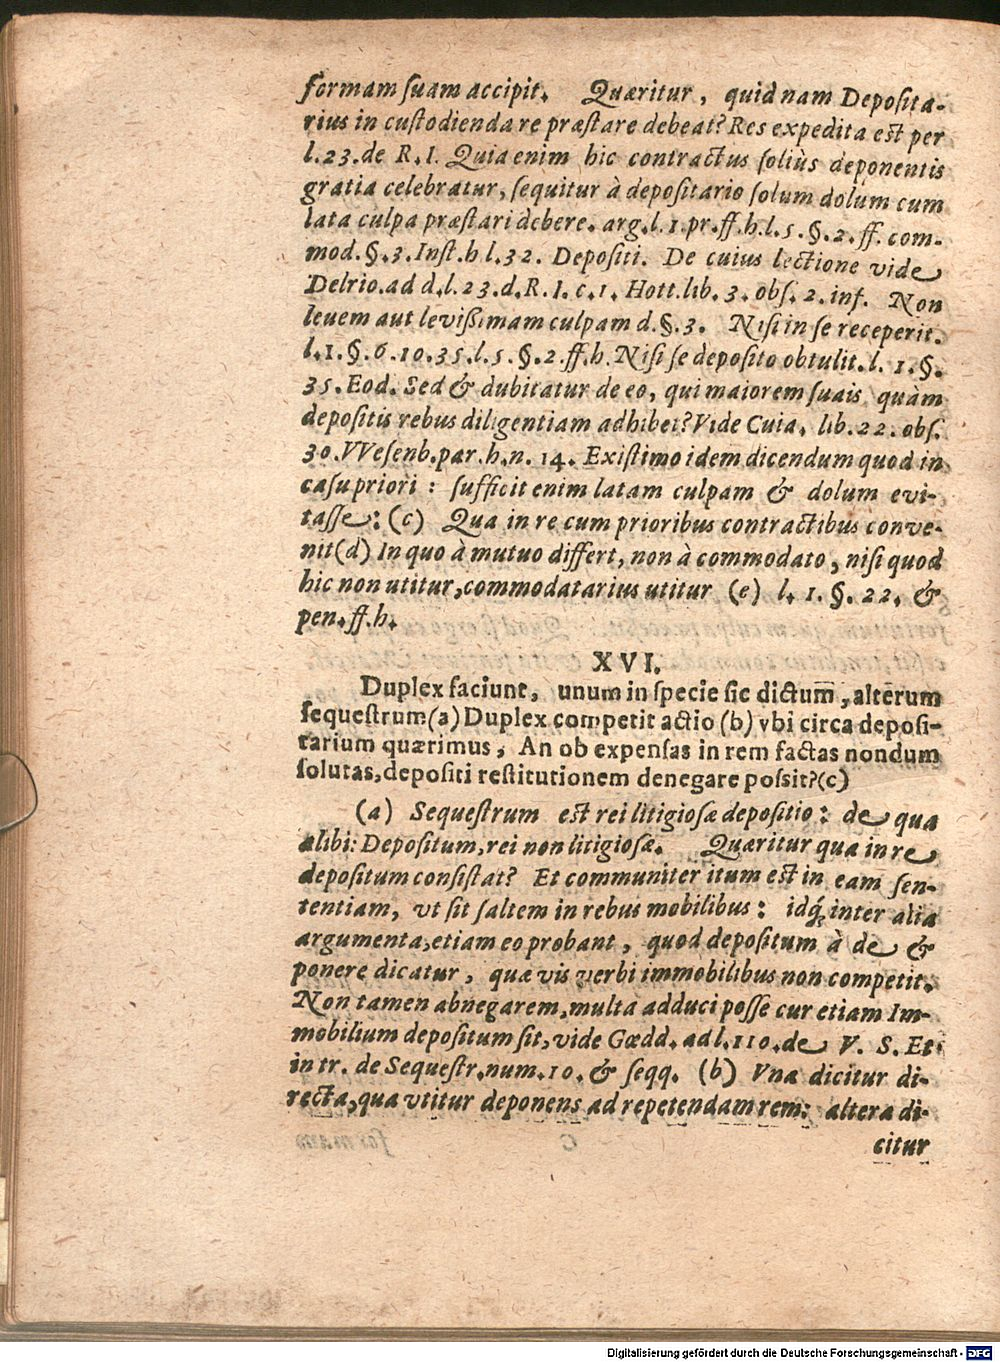 formam ſuam accipit. Quæritur, quidnam Depoſita-
rius in cuſtodienda re præſtare debeat? Res expedita eſt per
l.23.de R.I. Quia enim hic contractus ſoliùs deponentis
gratia celebratur, ſequitur à depoſitario ſolum dolum cum
lata culpa præſtari debere. arg.l.1.pr.ff.h.l.5.§.2.ff.com-
mod.§.3.Inſt.h l.32. Depoſiti. De cuius lectione vide
Delrio.ad d.l.23.d.R.I.c.1. Hott.lib.3.obſ.2.inf. Non
leuem aut leviſſimam culpam d.§.3. Niſi in ſe receperit.
l.1.§.6.10.35.l.5.§.2.ff.h. Niſi ſe depoſito obtulit.l. 1.§.
35.Eod. Sed & dubitatur de eo, qui maiorem ſuais quàm
depoſitis rebus diligentiam adhibet? Vide Cuia. lib.22.obſ.
30.VVeſenb.par.h.n. 14. Exiſtimo idem dicendum quod in
caſu priori: ſufficit enim latam culpam & dolum evi-
taſſe: (c) Qua in re cum prioribus contractibus conve-
nit(d) In quo à mutuo differt, non à commodato, niſi quod
hic non utitur, commodatarius utitur (e) l. 1. §. 22. &
pen.ff.h.
XVI.
Duplex faciunt, unum in ſpecie ſic dictum, alterum
ſequeſtrum(a)Duplex competit actio (b) vbi circa depoſi-
tarium quærimus, An ob expenſas in rem factas nondum
ſolutas, depoſiti reſtitutionem denegare poſsit?(c)
(a) Sequeſtrum eſt rei litigioſæ depoſitio: de qua
alibi: Depoſitum, rei non litigioſæ. Quæritur qua in re
depoſitum conſiſtat? Et communiter itum eſt in eam ſen-
tentiam, vt ſit ſaltem in rebus mobilibus: idq́; inter alia
argumenta, etiam eo probant, quod depoſitum à de &
ponere dicatur, quæ vis verbi immobilibus non competit.
Non tamen abnegarem, multa adduci poſſe cur etiam Im-
mobilium depoſitum ſit, vide Gœdd. ad l.110.de V. S. Et
in tr. de Sequeſtr.num.10.& ſeqq. (b) Vna dicitur di-
recta, qua vtitur deponens ad repetendam rem: altera di-
citur
Digitalisierung gefördert durch die Deutsche Forschungsgemeinschaft - DFG